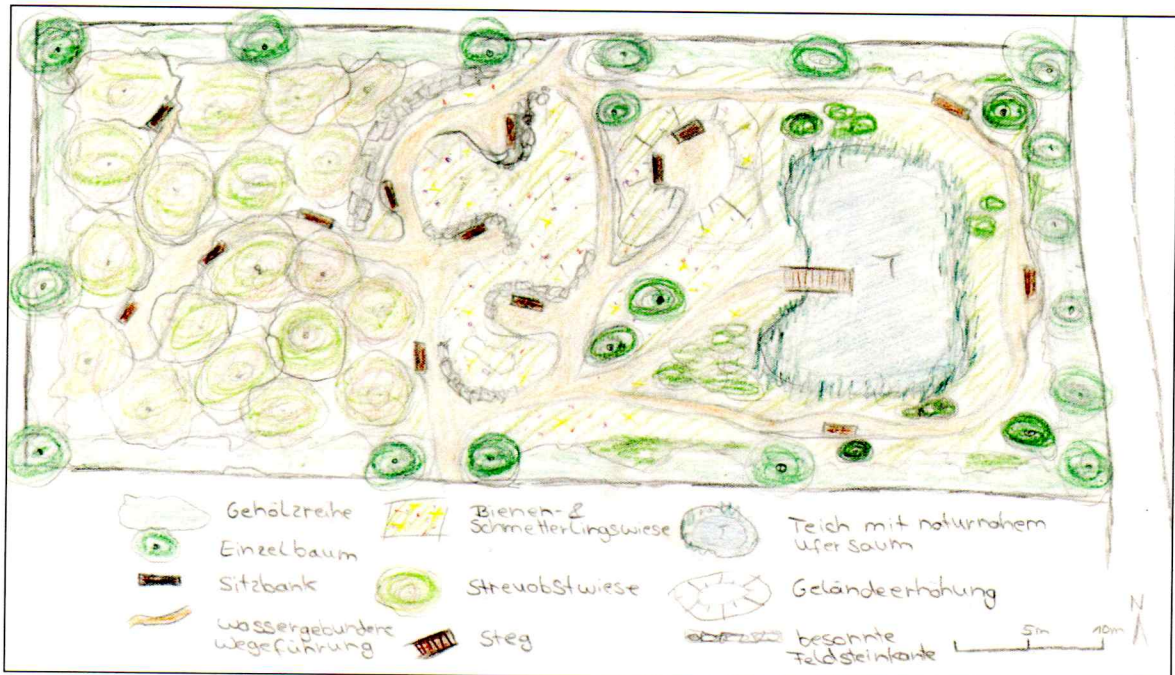 T
Gehölzreihe
Einzelbaum
Sitzbank
wassergebundene
Wegeführung
Bienen- &
Schmetterlingswiese
Streuobstwiese
Steg
T
Teich mit naturnahem
Ufersaum
Geländeerhöhung
besonnte
Feldsteinkante
5m 10m
N